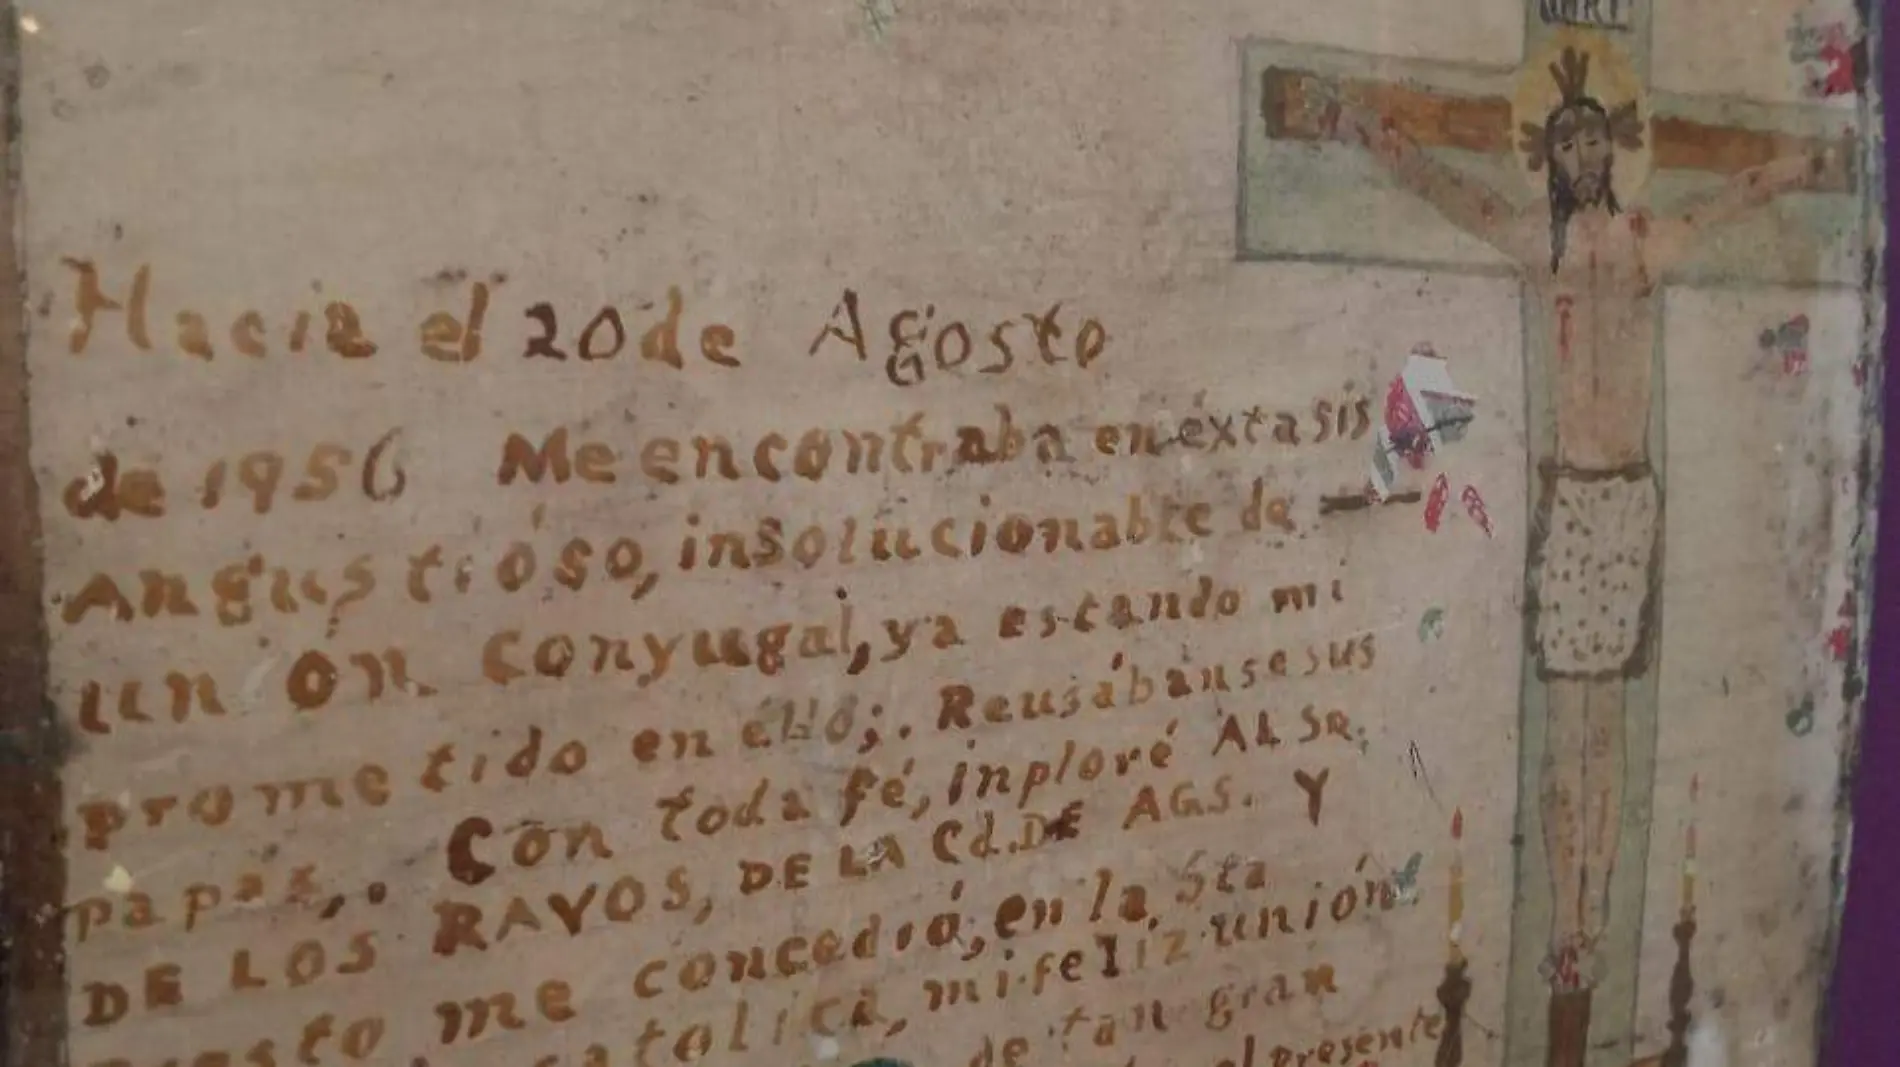 INRI
Hacia el 20 de Agosto
de 1956 Me encontraba en éxtasis
Angustióso, insolucionable de —
un ón conyugal, ya estando mi
prometido en éllo;. Reusábanse sus
papás,. Con toda fé, inploré AL SR.
DE LOS RAYOS, DE LA Cd. DE AGS. Y
me concedió, en la Sta
catolica, mi feliz unión
de tan gran
el presente